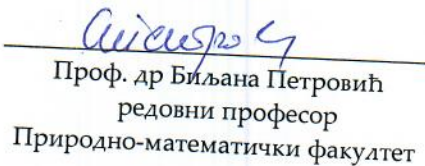 Проф. др Биљана Петровић
редовни професор
Природно-математички факултет